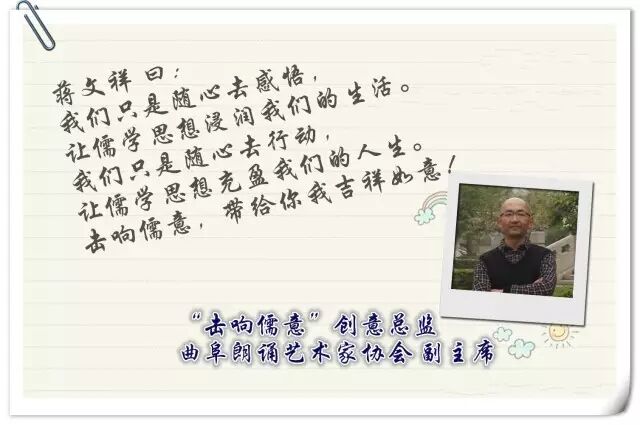 蒋文祥曰：
我们只是随心去感悟，
让儒学思想浸润我们的生活。
我们只是随心去行动，
让儒学思想充盈我们的人生。
击响儒意，带给你我吉祥如意！
“击响儒意”创意总监
曲阜朗诵艺术家协会副主席